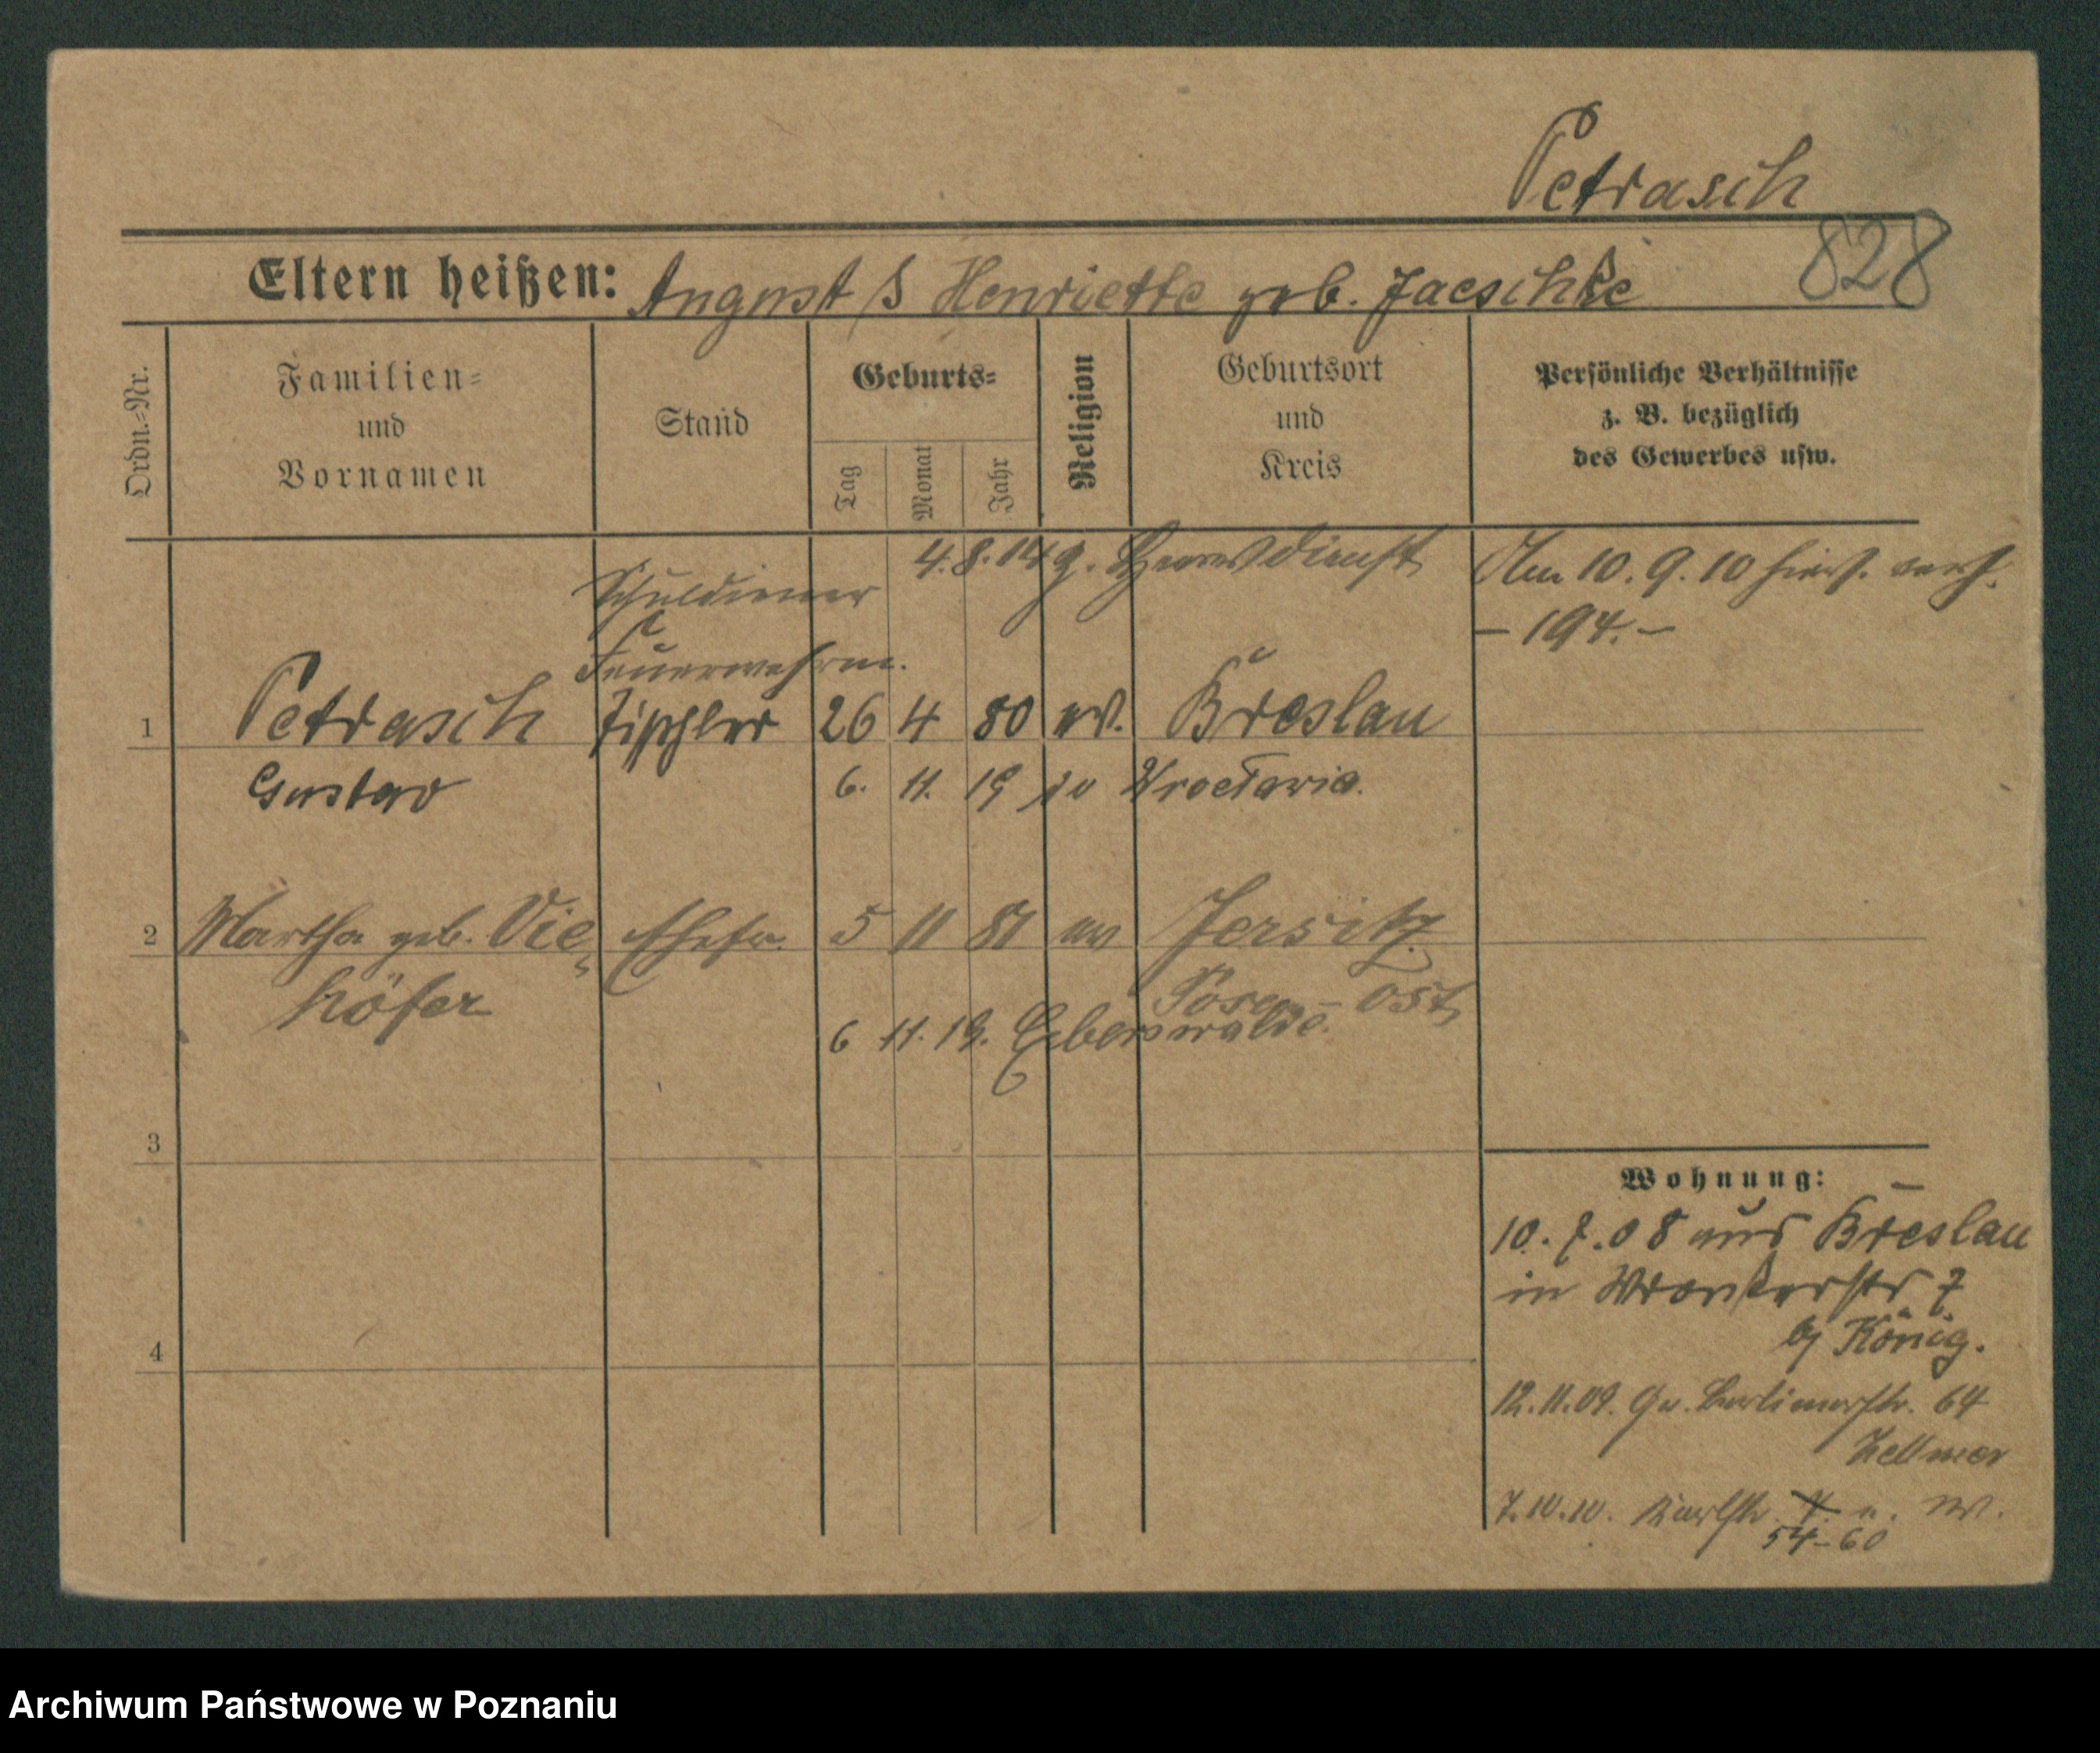 Petrasch
828
Eltern heißen: August & Henriette geb. Jaeschke
Ordn.=Nr.
Familien=
und
Vornamen
Stand
Geburts=
Tag
Monat
Jahr
Religion
Geburtsort
und
Kreis
Persönliche Verhältnisse
z. B. bezüglich
des Gewerbes usw.
4. 8. 14 z. Heeresdienst
Am 10. 9. 10 hier verh.
- 194. -
Schuldiener
Feuerwehrm.
1 Petrasch Tischler 26 4 80 ev. Breslau
Gustav 6. 11. 19 do Wrocławia.
2 Martha geb. Vie= Ehefr. 5 11 81 ev Jersitz
höfer Posen - Ost
6 11. 19. Eberswalde.
3
4
Wohnung:
10. 7. 08 aus Breslau
in Wronkerstr 7
bj König.
12. 11. 09. Gr. Berlinerstr. 64
Zellmer
7. 10. 10. Karlstr.
54-60
Archiwum Państwowe w Poznaniu